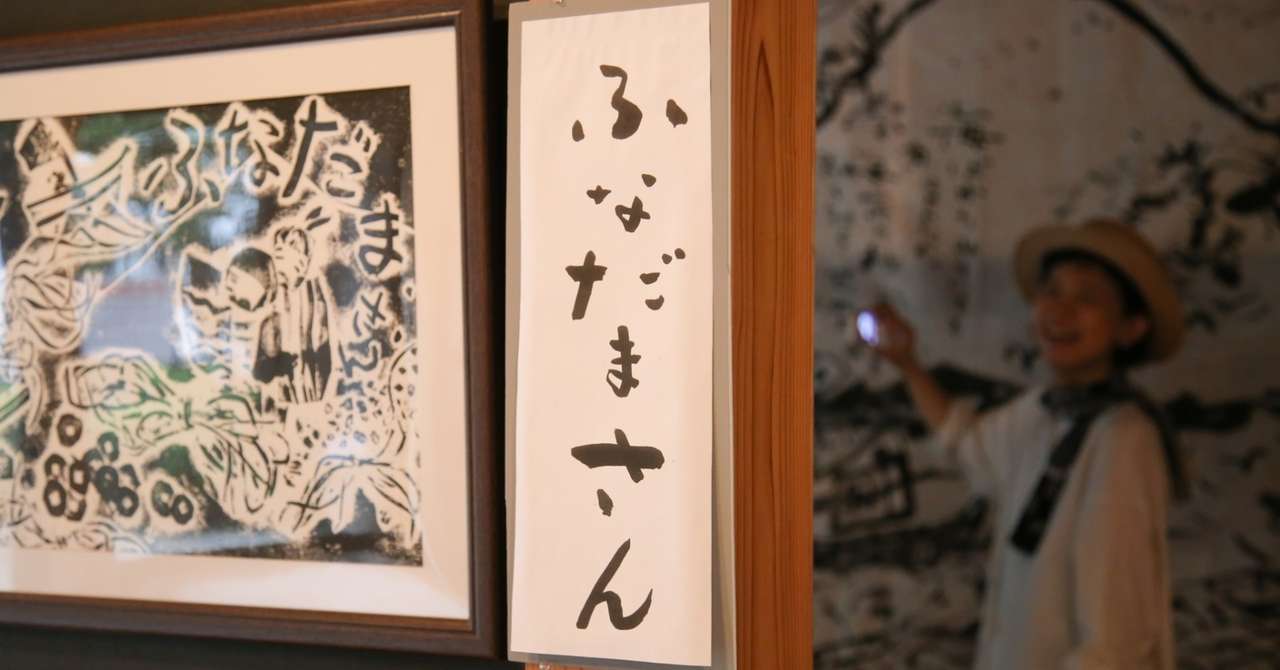 ふなだまさん
ふなだま
さん